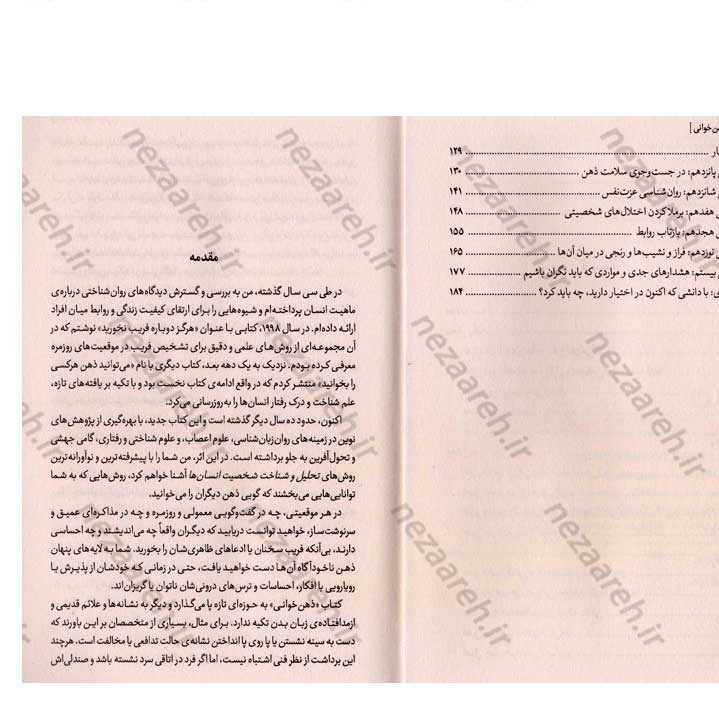 ن‌خوانی]
ار ................ ۱۲۹
پانزدهم: در جست‌وجوی سلامت ذهن ................ ۱۳۰
شانزدهم: روان‌شناسی عزت‌نفس ................ ۱۴۱
هفدهم: برملا کردن اختلال‌های شخصیتی ................ ۱۴۸
هجدهم: بازتاب روابط ................ ۱۵۵
نوزدهم: فراز و نشیب‌ها و رنجی در میان آن‌ها ................ ۱۶۵
بیستم: هشدارهای جدی و مواردی که باید نگران باشیم ................ ۱۷۷
ی: با دانشی که اکنون در اختیار دارید، چه باید کرد؟ ................ ۱۸۴
مقدمه
در طی سی سال گذشته، من به بررسی و گسترش دیدگاه‌های روان‌شناختی درباره‌ی
ماهیت انسان پرداخته‌ام و شیوه‌هایی را برای ارتقای کیفیت زندگی و روابط میان افراد
ارائه داده‌ام. در سال ۱۹۹۸، کتابی با عنوان «هرگز دوباره فریب نخورید» نوشتم که در
آن مجموعه‌ای از روش‌های علمی و دقیق برای تشخیص فریب در موقعیت‌های روزمره
معرفی کرده بودم. نزدیک به یک دهه بعد، کتاب دیگری با نام «می‌توانید ذهن هرکسی
را بخوانید» منتشر کردم که در واقع ادامه‌ی کتاب نخست بود و با تکیه بر یافته‌های تازه،
علم شناخت و درک رفتار انسان‌ها را به‌روزرسانی می‌کرد.
اکنون، حدود ده سال دیگر گذشته است و این کتاب جدید، با بهره‌گیری از پژوهش‌های
نوین در زمینه‌های روان‌زبان‌شناسی، علوم اعصاب، و علوم شناختی و رفتاری، گامی جهشی
و تحول‌آفرین به جلو برداشته است. در این اثر، من شما را با پیشرفته‌ترین و نوآورانه‌ترین
روش‌های تحلیل و شناخت شخصیت انسان‌ها آشنا خواهم کرد، روش‌هایی که به شما
توانایی‌هایی می‌بخشند که گویی ذهن دیگران را می‌خوانید.
در هر موقعیتی، چه در گفت‌وگویی معمولی و روزمره و چه در مذاکره‌ای عمیق و
سرنوشت‌ساز، خواهید توانست دریابید که دیگران واقعاً چه می‌اندیشند و چه احساسی
دارند، بی‌آنکه فریب سخنان یا ادعاهای ظاهری‌شان را بخورید. شما به لایه‌های پنهان
ذهن ناخودآگاه آن‌ها دست خواهید یافت، حتی در زمانی که خودشان از پذیرش یا
رویارویی با افکار، احساسات و ترس‌های درونی‌شان ناتوان یا گریزان‌اند.
کتاب «ذهن‌خوانی» به حوزه‌ای تازه پا می‌گذارد و دیگر به نشانه‌ها و علائم قدیمی و
ازمدافتاده‌ی زبان بدن تکیه ندارد. برای مثال، بسیاری از متخصصان بر این باورند که
دست به سینه نشستن یا پا روی پا انداختن نشانه‌ی حالت تدافعی یا مخالفت است. هرچند
این برداشت از نظر فنی اشتباه نیست، اما اگر فرد در اتاقی سرد نشسته باشد و صندلی‌اش
nezaareh.ir
nezaareh.ir
nezaareh.ir
nezaareh.ir
nezaareh.ir
nezaareh.ir
nezaareh.ir
nezaareh.ir
nezaareh.ir
nezaareh.ir
nezaareh.ir
nezaareh.ir